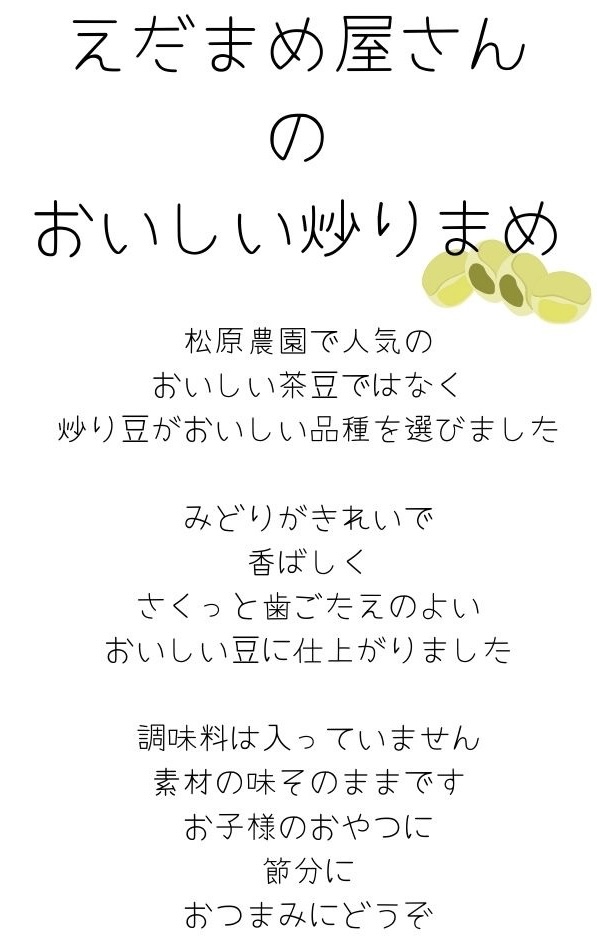 えだまめ屋さん
の
おいしい炒りまめ
松原農園で人気の
おいしい茶豆ではなく
炒り豆がおいしい品種を選びました
みどりがきれいで
香ばしく
さくっと歯ごたえのよい
おいしい豆に仕上がりました
調味料は入っていません
素材の味そのままです
お子様のおやつに
節分に
おつまみにどうぞ